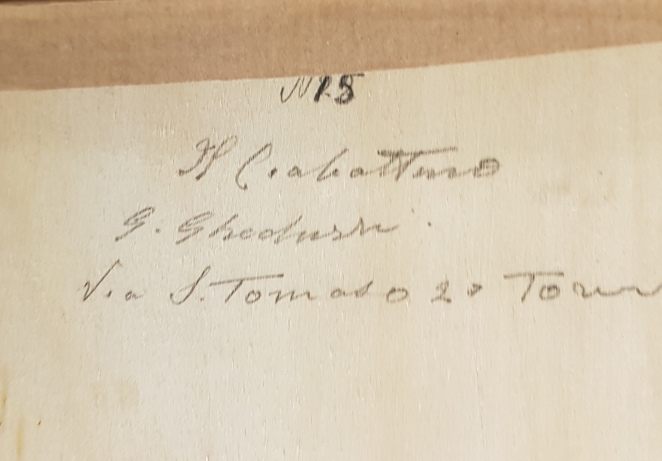 N 15
Il Ciabattino
G. Gheduzzi.
Via S. Tomaso 20 Torino